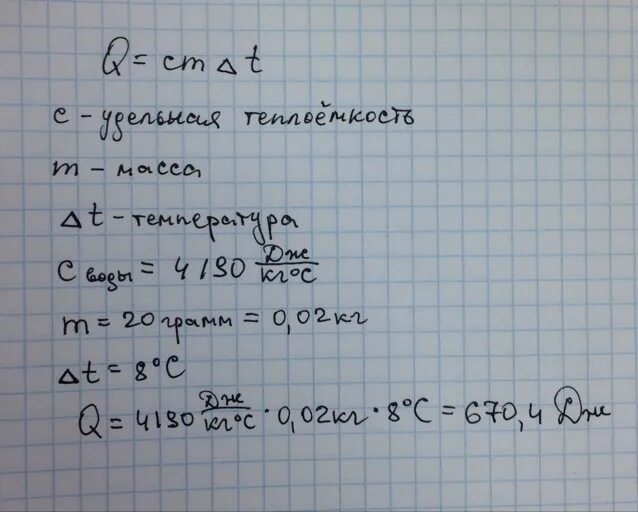 Q = cm Δt
c - удельная теплоёмкость
m - масса
Δt - температура
C воды = 4190 Дж/кг°С
m = 20 грамм = 0,02 кг
Δt = 8°C
Q = 4190 Дж/кг°С · 0,02 кг · 8°C = 670,4 Дж